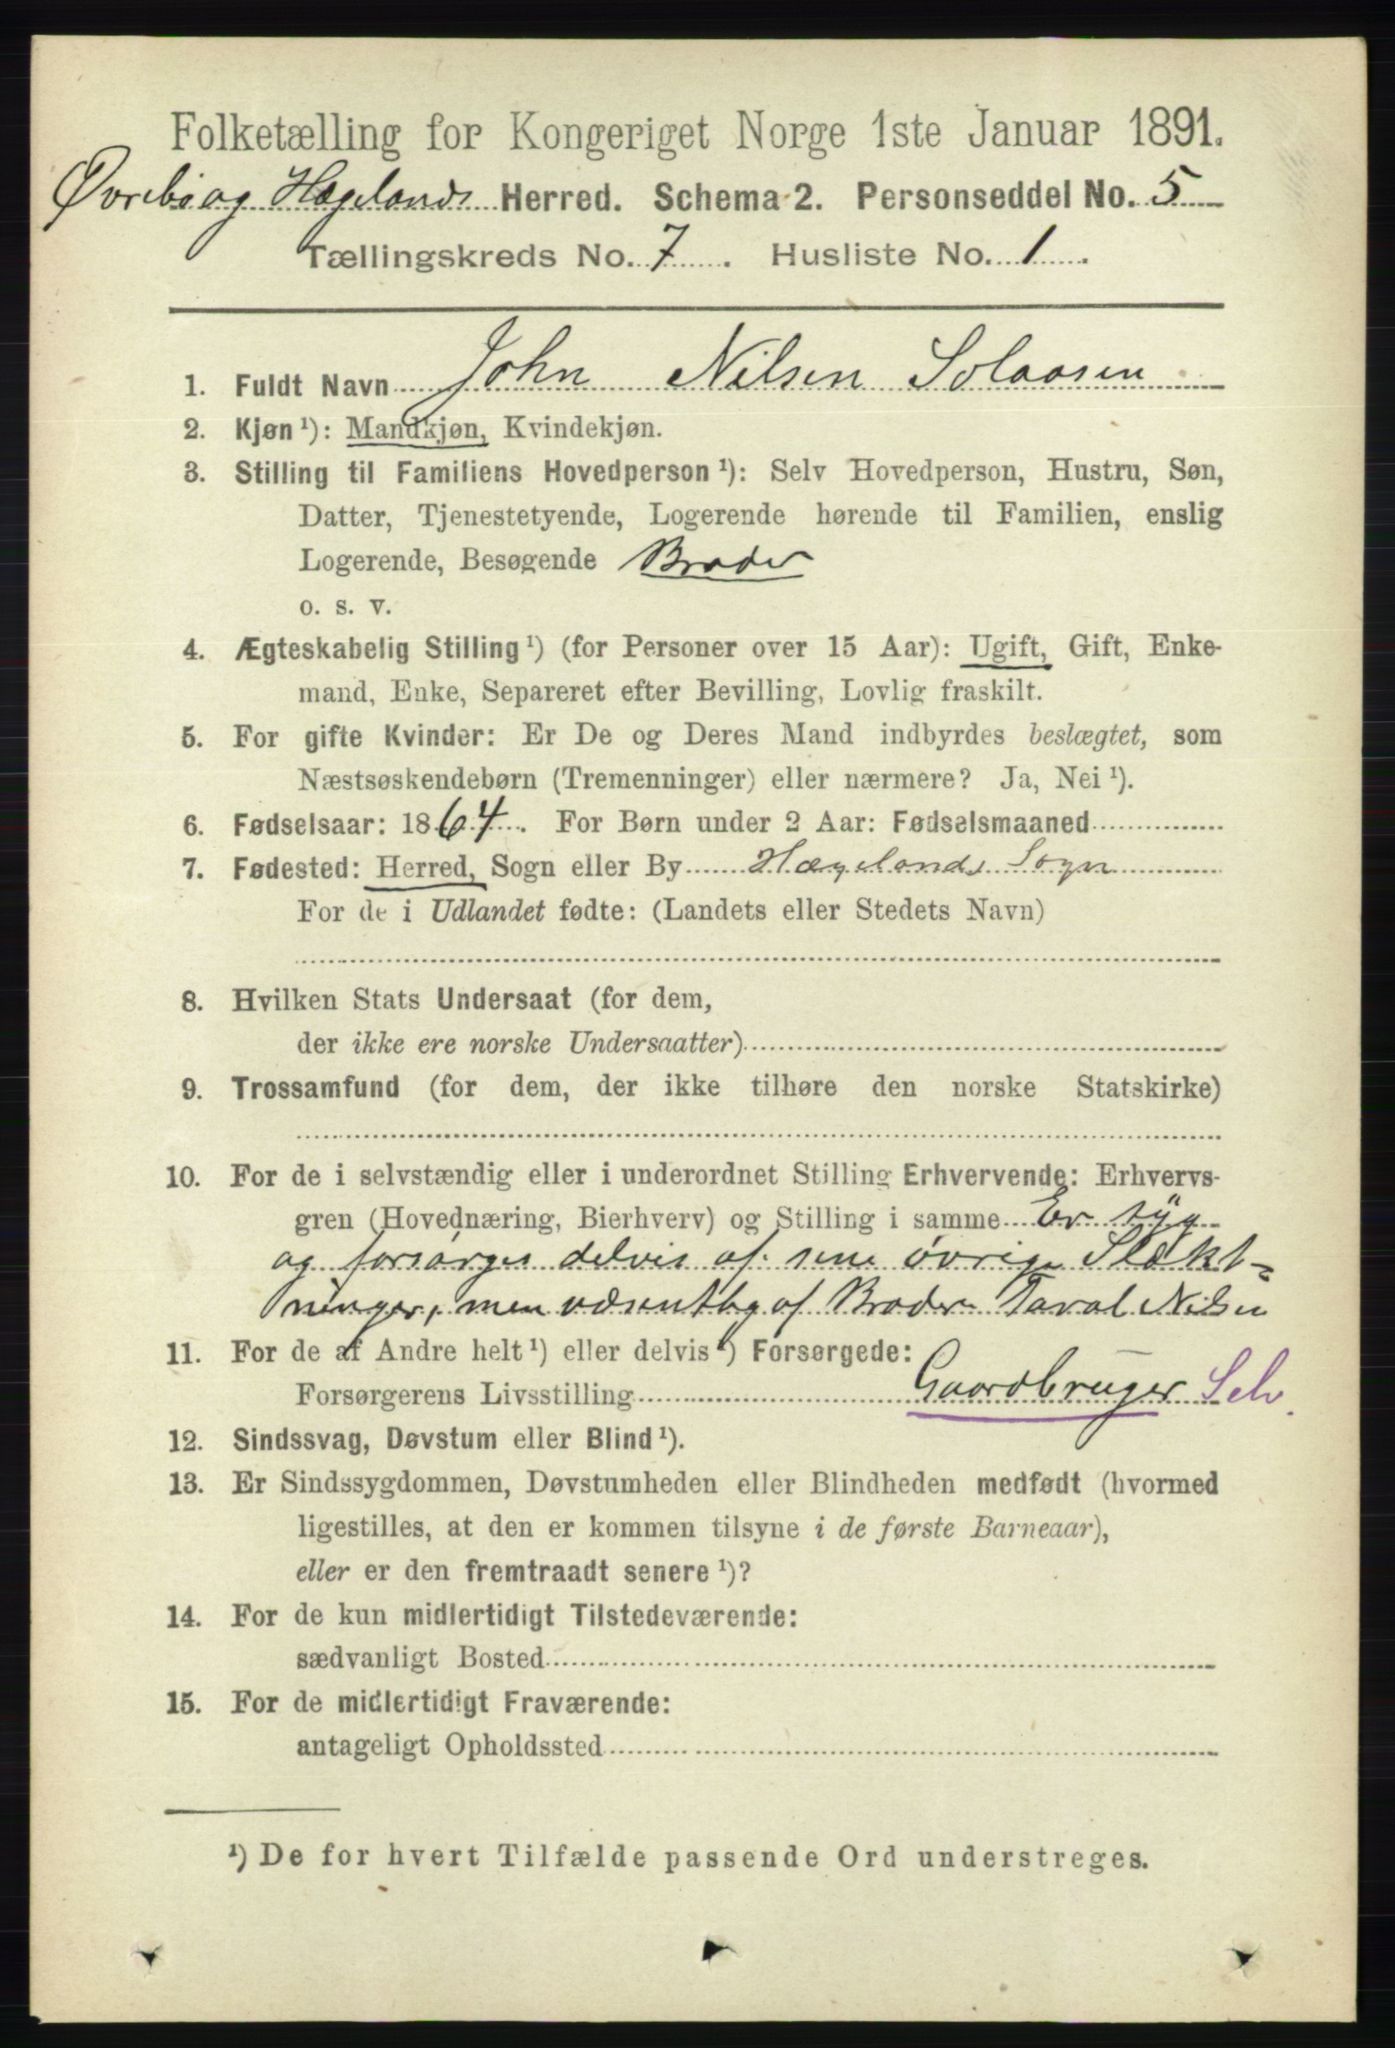 Folketælling for Kongeriget Norge 1ste Januar 1891.
Øvrebø og Hægelands Herred. Schema 2. Personseddel No. 5
Tællingskreds No. 7. Husliste No. 1.
1. Fuldt Navn John Nilsen Solaasen
2. Kjøn¹): Mandkjøn, Kvindekjøn.
3. Stilling til Familiens Hovedperson¹): Selv Hovedperson, Hustru, Søn,
Datter, Tjenestetyende, Logerende hørende til Familien, enslig
Logerende, Besøgende Broder
o. s. v.
4. Ægteskabelig Stilling¹) (for Personer over 15 Aar): Ugift, Gift, Enke-
mand, Enke, Separeret efter Bevilling, Lovlig fraskilt.
5. For gifte Kvinder: Er De og Deres Mand indbyrdes beslægtet, som
Næstsøskendebørn (Tremenninger) eller nærmere? Ja, Nei¹).
6. Fødselsaar: 1864. For Børn under 2 Aar: Fødselsmaaned
7. Fødested: Herred, Sogn eller By Hægelands Sogn
For de i Udlandet fødte: (Landets eller Stedets Navn)
8. Hvilken Stats Undersaat (for dem,
der ikke ere norske Undersaatter)
9. Trossamfund (for dem, der ikke tilhøre den norske Statskirke)
10. For de i selvstændig eller i underordnet Stilling Erhvervende: Erhvervs-
gren (Hovednæring, Bierhverv) og Stilling i samme Er syg
og forsørges delvis af sine øvrige Slækt-
ninger, men væsentlig af Broder Taral Nilsen
11. For de af Andre helt¹) eller delvis¹) Forsørgede:
Forsørgerens Livsstilling Gaardbruger Selv.
12. Sindssvag, Døvstum eller Blind¹).
13. Er Sindssygdommen, Døvstumheden eller Blindheden medfødt (hvormed
ligestilles, at den er kommen tilsyne i de første Barneaar),
eller er den fremtraadt senere¹)?
14. For de kun midlertidigt Tilstedeværende:
sædvanligt Bosted
15. For de midlertidigt Fraværende:
antageligt Opholdssted
¹) De for hvert Tilfælde passende Ord understreges.